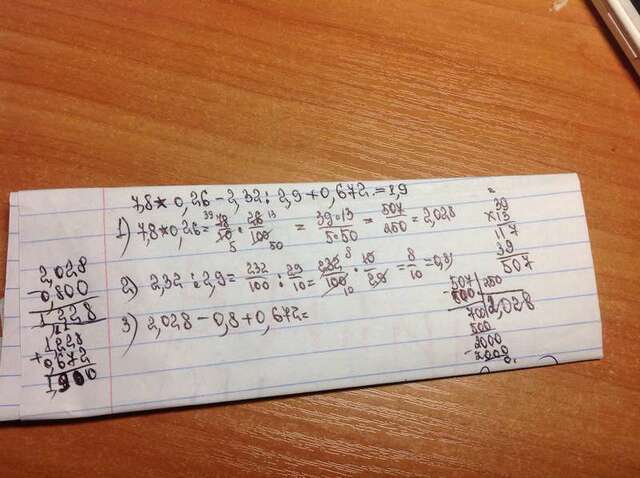 7,8 * 0,26 - 2,32 : 2,9 + 0,672 = 1,9
1) 7,8 * 0,26 = 78/10 · 26/100 = 39·13/5·50 = 507/250 = 2,028
39 13
5 50
2) 2,32 : 2,9 = 232/100 : 29/10 = 232/100 · 10/29 = 8/10 = 0,8
8
10
3) 2,028 - 0,8 + 0,672 =
2,028
0,800
1,228
1,228
+ 0,672
1,900
39
x 13
117
39
507
507 | 250
- 500 | 2,028
700
500
- 2000
2000
0